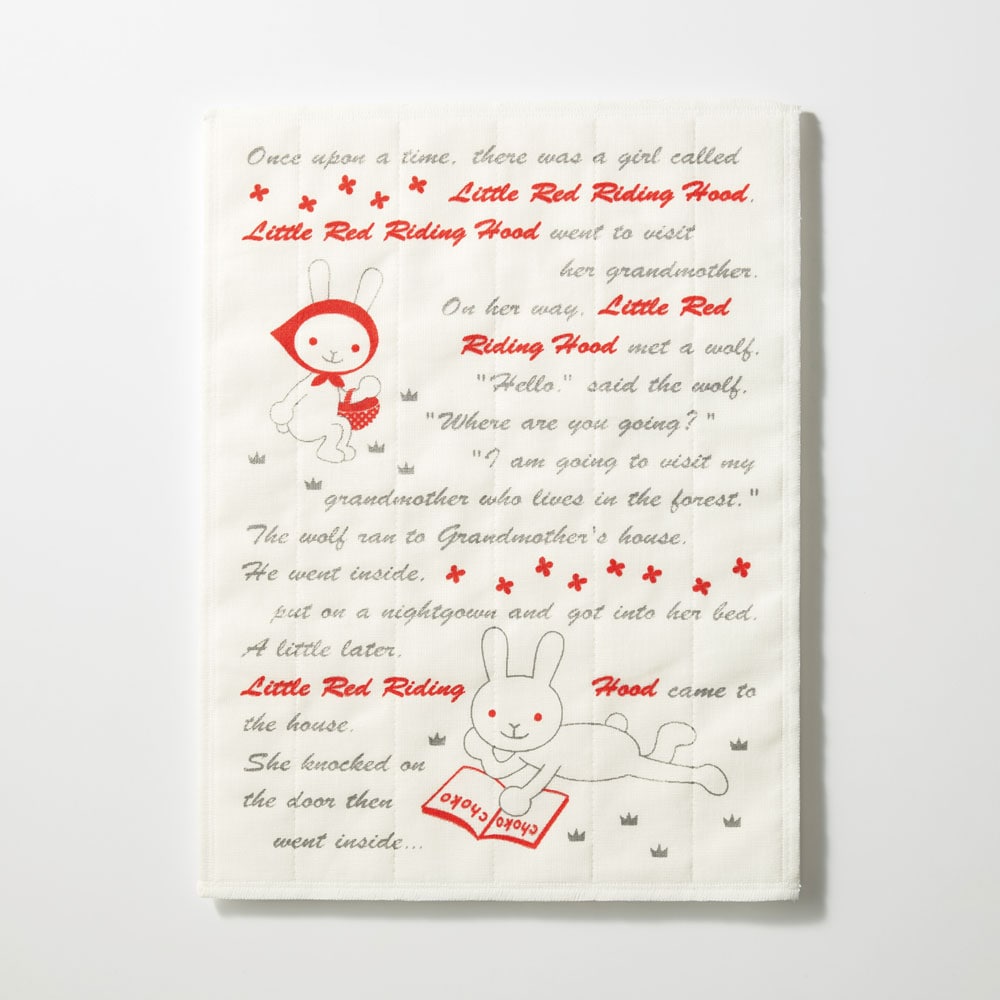 Once upon a time, there was a girl called
Little Red Riding Hood.
Little Red Riding Hood went to visit
her grandmother.
On her way, Little Red
Riding Hood met a wolf.
"Hello." said the wolf.
"Where are you going?"
"I am going to visit my
grandmother who lives in the forest."
The wolf ran to Grandmother's house.
He went inside,
put on a nightgown and got into her bed.
A little later,
Little Red Riding Hood came to
the house.
She knocked on
the door then
went inside...
choko choko